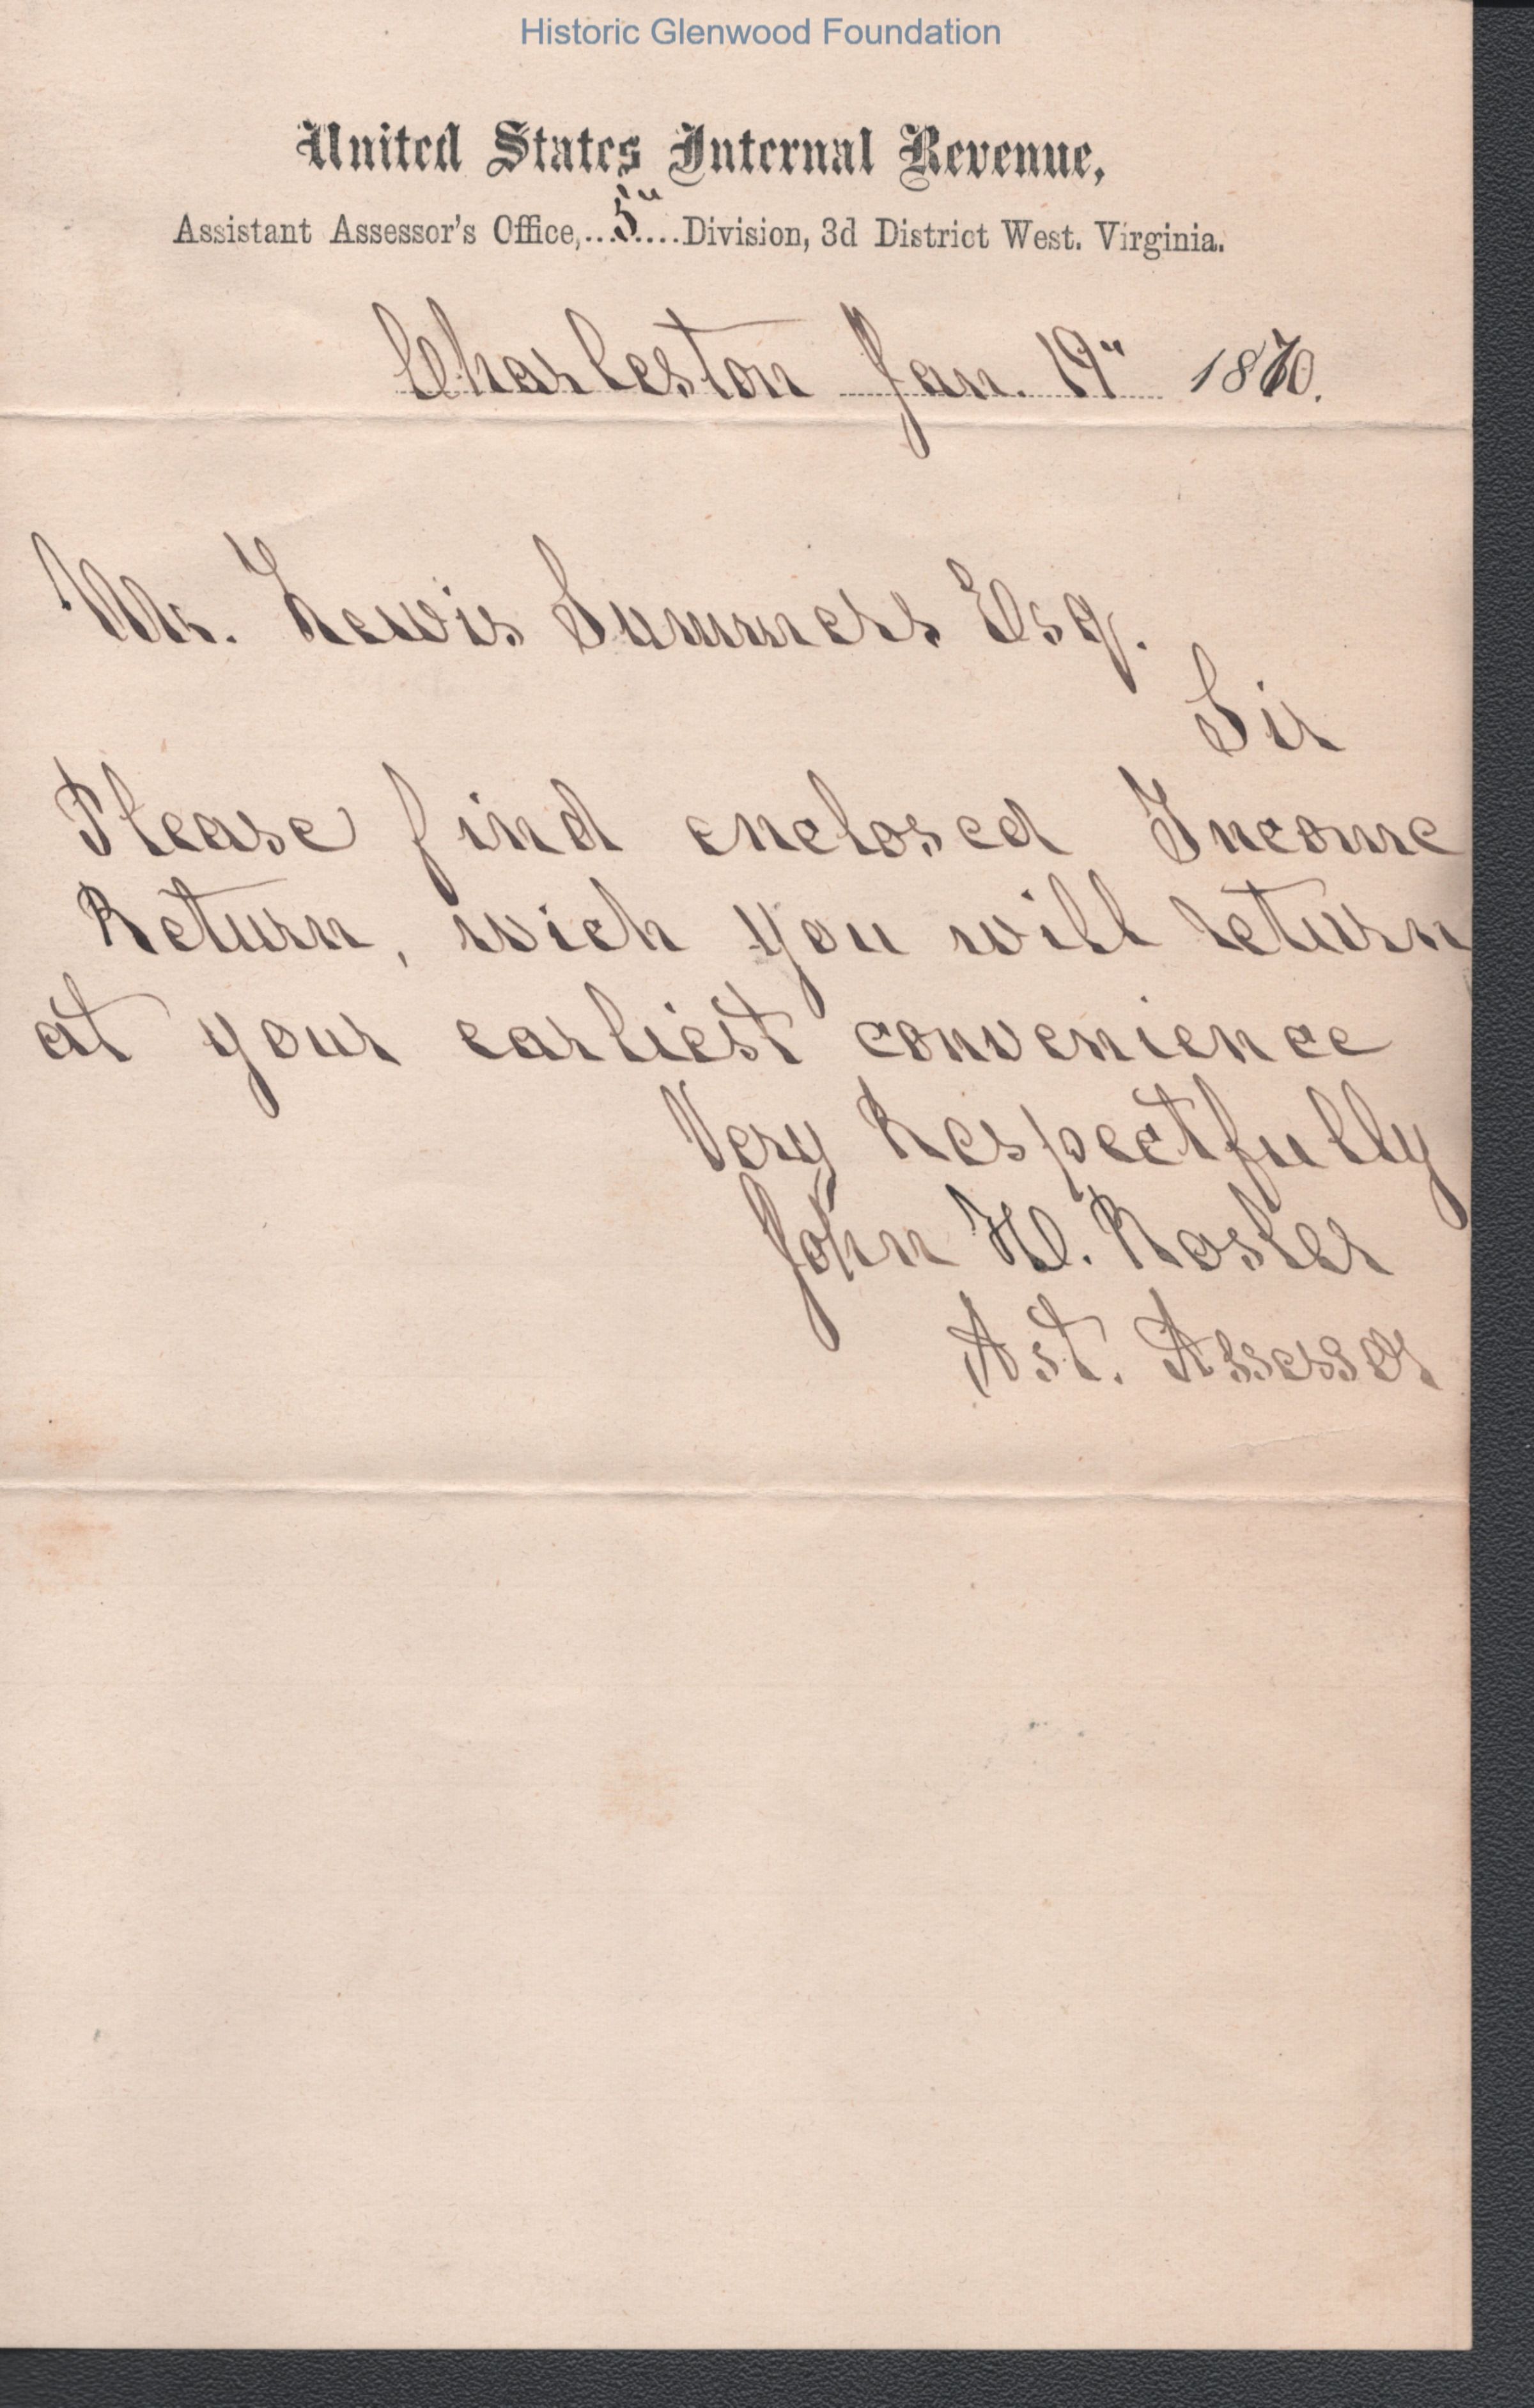 Historic Glenwood Foundation
United States Internal Revenue,
Assistant Assessor's Office,...5"....Division, 3d District West. Virginia.
Charleston Jan. 19" 1870.
Mr. Lewis Summers Esq.
Sir
Please find enclosed Income
Return, wich you will return
at your earliest convenience
Very Respectfully
John H. Rosler
Ast. Assessor